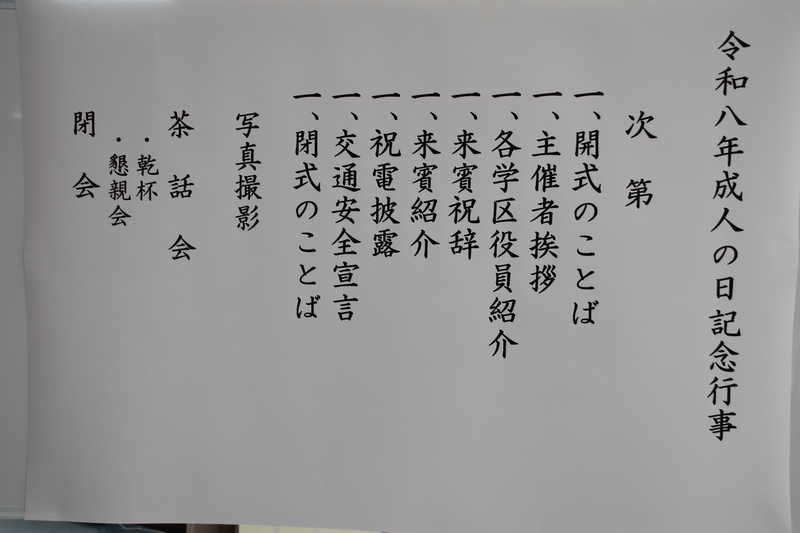 令和八年成人の日記念行事
次第
一、開式のことば
一、主催者挨拶
一、各学区役員紹介
一、来賓祝辞
一、来賓紹介
一、祝電披露
一、交通安全宣言
一、閉式のことば
写真撮影
茶話会
・乾杯
・懇親会
閉会